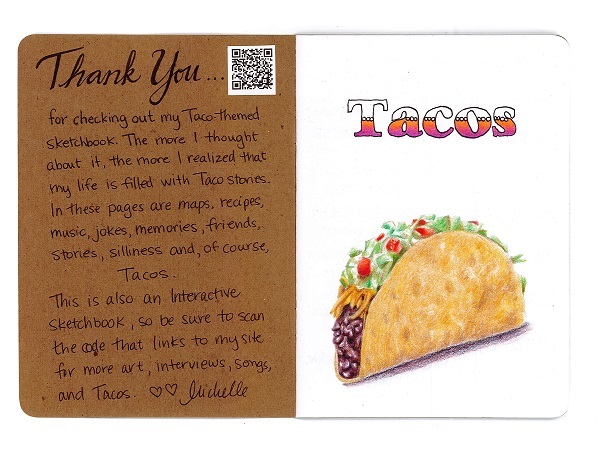 Thank You...
for checking out my Taco-themed
sketchbook. The more I thought
about it, the more I realized that
my life is filled with Taco stories.
In these pages are maps, recipes,
music, jokes, memories, friends,
stories, silliness and, of course,
Tacos.
This is also an Interactive
Sketchbook, so be sure to scan
the code that links to my site
for more art, interviews, songs,
and Tacos. ♡♡ Michelle
Tacos